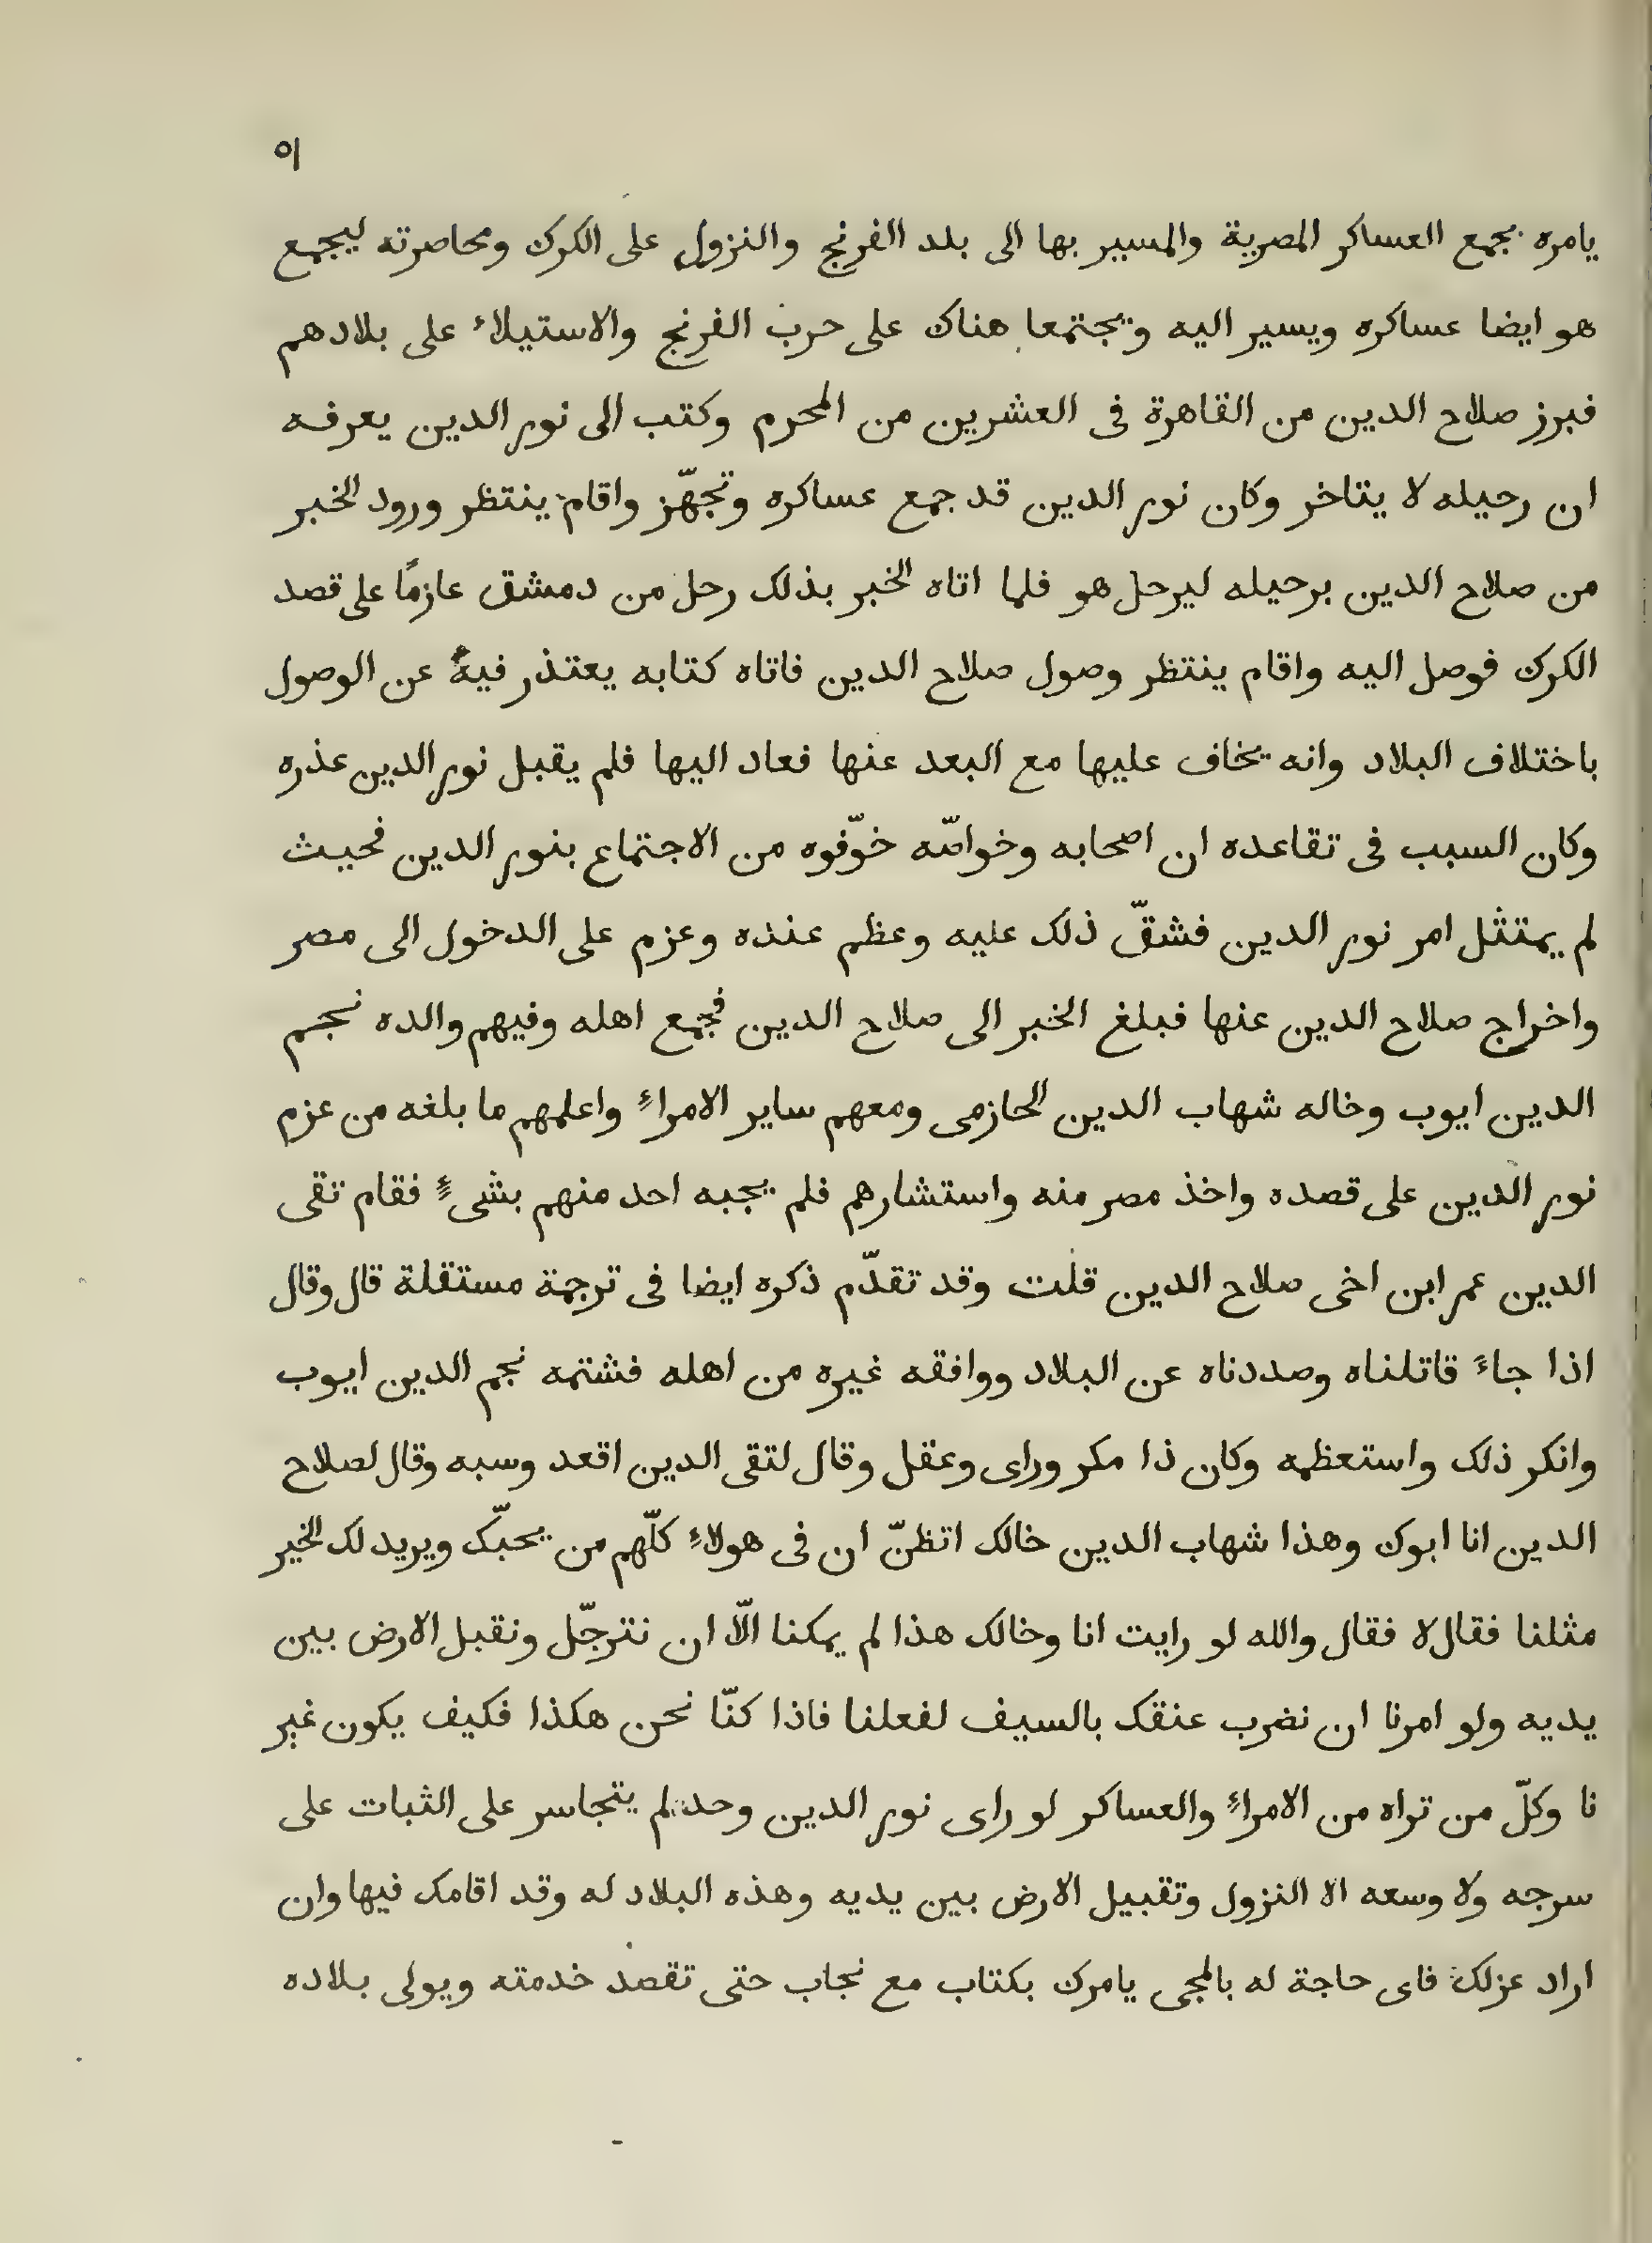 ٥١
يامره بجمع العساكر المصرية والمسير بها الى بلد الفرنج والنزول على الكرك ومحاصرته ليجمع
هو ايضا عساكره ويسير اليه ويجتمعا هناك على حرب الفرنج والاستيلاء على بلادهم
فبرز صلاح الدين من القاهرة فى العشرين من المحرم وكتب الى نور الدين يعرفه
ان رحيله لا يتاخر وكان نور الدين قد جمع عساكره وتجهّز واقام ينتظر ورود الخبر
من صلاح الدين برحيله ليرحل هو فلما اتاه الخبر بذلك رحل من دمشق عازمًا على قصد
الكرك فوصل اليه واقام ينتظر وصول صلاح الدين فاتاه كتابه يعتذر فيه عن الوصول
باختلاف البلاد وانه يخاف عليها مع البعد عنها فعاد اليها فلم يقبل نور الدين عذره
وكان السبب فى تقاعده ان اصحابه وخواصّه خوّفوه من الاجتماع بنور الدين فحيث
لم يمتثل امر نور الدين فشقّ ذلك عليه وعظم عنده وعزم على الدخول الى مصر
واخراج صلاح الدين عنها فبلغ الخبر الى صلاح الدين فجمع اهله وفيهم والده نجم
الدين ايوب وخاله شهاب الدين الحازمى ومعهم ساير الامراءِ واعلمهم ما بلغه من عزم
نور الدين على قصده واخذ مصر منه واستشارهم فلم يجبه احد منهم بشىءٍ فقام تقى
الدين عمر ابن اخى صلاح الدين قلت وقد تقدّم ذكره ايضا فى ترجمة مستقلة قال وقال
اذا جاءَ قاتلناه وصددناه عن البلاد ووافقه غيره من اهله فشتمه نجم الدين ايوب
وانكر ذلك واستعظمه وكان ذا مكر وراى وعقل وقال لتقى الدين اقعد وسبه وقال لصلاح
الدين انا ابوك وهذا شهاب الدين خالك اتظنّ ان فى هولاءِ كلّهم من يحبّك ويريد لك الخير
مثلنا فقال لا فقال والله لو رايت انا وخالك هذا لم يمكنا الّا ان نترجّل ونقبل الارض بين
يديه ولو امرنا ان نضرب عنقك بالسيف لفعلنا فاذا كنّا نحن هكذا فكيف يكون غير
نا وكلّ من تراه من الامراءِ والعساكر لو راى نور الدين وحده لم يتجاسر على الثبات على
سرجه ولا وسعه الا النزول وتقبيل الارض بين يديه وهذه البلاد له وقد اقامك فيها وان
اراد عزلك فاى حاجة له بالمجى يامرك بكتاب مع نجاب حتى تقصد خدمته ويولى بلاده